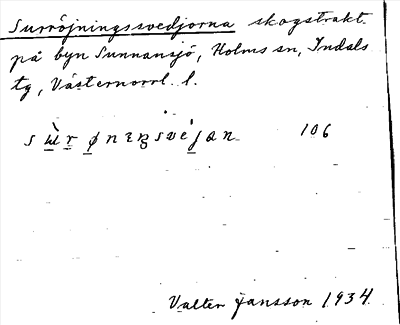 Surröjningssvedjorna skogstrakt
på byn Sunnansjö, Holms sn, Indals
tg, Västernorrl. l.
106
Valter Jansson 1934